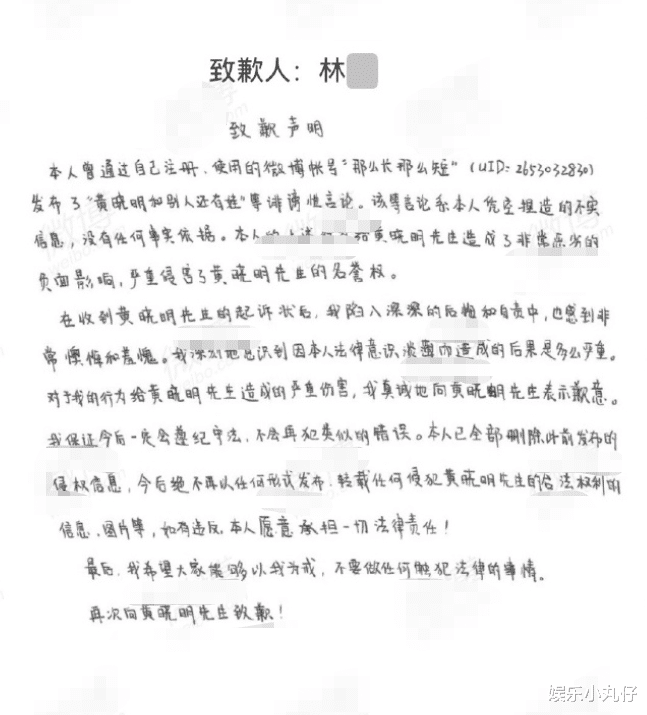 致歉人：林
致歉声明
本人曾通过自己注册、使用的微博帐号“那么长那么短”（UID：2653032830）
发布了“黄晓明和别人还有娃”等诽谤性言论。该等言论系本人凭空捏造的不实
信息，没有任何事实依据。本人的 给黄晓明先生造成了非常恶劣的
负面影响，严重侵害了黄晓明先生的名誉权。
在收到黄晓明先生的起诉状后，我陷入深深的后悔和自责中，也感到非
常懊悔和羞愧。我深刻地意识到因本人法律意识淡薄而造成的后果是多么严重。
对于我的行为给黄晓明先生造成的严重伤害，我真诚地向黄晓明先生表示歉意。
我保证今后一定会遵纪守法，不会再犯类似的错误。本人已全部删除此前发布的
侵权信息，今后绝不再以任何形式发布、转载任何侵犯黄晓明先生的合法权利的
信息、图片等，如有违反，本人愿意承担一切法律责任！
最后，我希望大家能够以我为戒，不要做任何触犯法律的事情。
再次向黄晓明先生致歉！
娱乐小丸仔